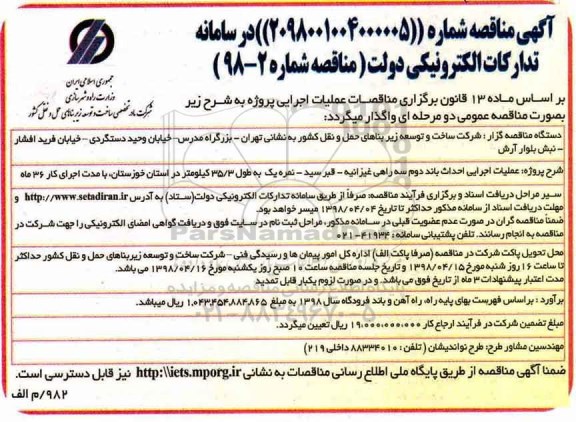 آگهی مناقصه شماره ((۲۰۹۸۰۰۱۰۰۴۰۰۰۰۰۵))در سامانه
تدارکات الکترونیکی دولت ( مناقصه شماره ۲-۹۸ )
جمهوری اسلامی ایران
وزارت راه و شهرسازی
شرکت مادر تخصصی ساخت و توسعه زیربناهای حمل و نقل کشور
بر اساس ماده ۱۳ قانون برگزاری مناقصات عملیات اجرایی پروژه به شرح زیر
بصورت مناقصه عمومی دو مرحله ای واگذار میگردد:
دستگاه مناقصه گزار : شرکت ساخت و توسعه زیر بناهای حمل و نقل کشور به نشانی تهران - بزرگراه مدرس- خیابان وحید دستگردی - خیابان فرید افشار
- نبش بلوار آرش
شرح پروژه: عملیات اجرایی احداث باند دوم سه راهی غیزانیه - قیر سید - نمره یک به طول ۳۵/۳ کیلومتر در استان خوزستان، با مدت اجرای کار ۳۶ ماه
سیر مراحل دریافت اسناد و برگزاری فرآیند مناقصه: صرفاً از طریق سامانه تدارکات الکترونیکی دولت(ستاد) به آدرس http://www.setadiran.ir و
مهلت دریافت اسناد از سامانه مذکور حداکثر تا تاریخ ۱۳۹۸/۰۴/۰۴ میسر خواهد بود.
ضمناً مناقصه گران در صورت عدم عضویت قبلی در سامانه مذکور، مراحل ثبت نام در سایت فوق و دریافت گواهی امضای الکترونیکی را جهت شرکت در
مناقصه به انجام رسانند. تلفن پشتیبانی سامانه: ۴۱۹۳۴-۰۲۱
محل تحویل پاکت شرکت در مناقصه (صرفا پاکت الف) اداره کل امور پیمان ها و رسیدگی فنی - شرکت ساخت و توسعه زیربناهای حمل و نقل کشور حداکثر
تا ساعت ۱۶ روز شنبه مورخ ۱۳۹۸/۰۴/۱۵ و تاریخ جلسه مناقصه ساعت ۱۰ صبح روز یکشنبه مورخ ۱۳۹۸/۰۴/۱۶ می باشد.
مدت اعتبار پیشنهادات ۳ ماه از تاریخ فوق می باشد. و در صورت لزوم یکبار قابل تمدید
برآورد : بر اساس فهرست بهای پایه راه، راه آهن و باند فرودگاه سال ۱۳۹۸ به مبلغ ۱،۰۴۳،۴۵۴،۸۸۴،۸۶۵ ریال میباشد.
مبلغ تضمین شرکت در فرآیند ارجاع کار ۱۹،۰۰۰،۰۰۰،۰۰۰ ریال تعیین میگردد.
مهندسین مشاور طرح: طرح نواندیشان ( تلفن : ۸۸۳۳۴۰۱۰ داخلی ۲۱۹)
ضمنا آگهی مناقصه از طریق پایگاه ملی اطلاع رسانی مناقصات به نشانی http://iets.mporg.ir نیز قابل دسترسی است.
۹۸۲/م الف